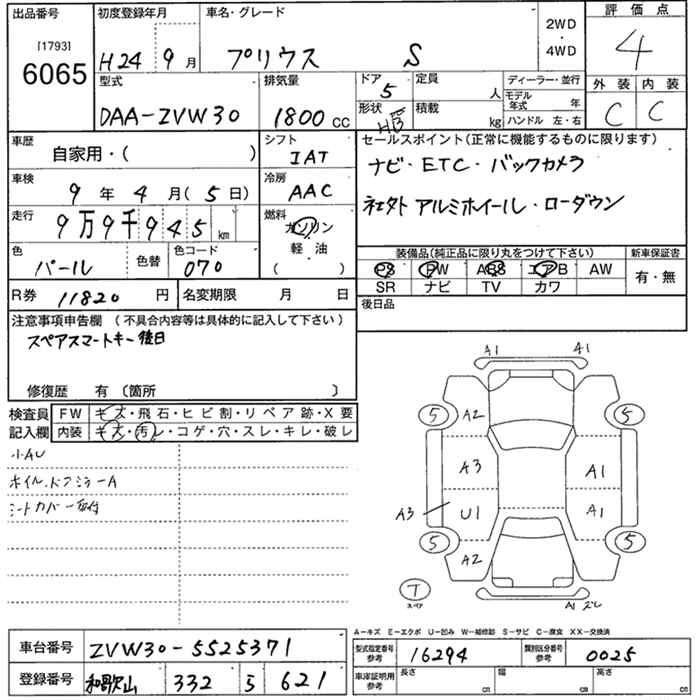 出品番号 初度登録年月 車名・グレード 2WD ・ 4WD 評価点
[1793] 6065 H24年 9月 プリウス S 4
型式 排気量 ドア 定員 ディーラー・並行 外装 内装
DAA-ZVW30 1800 CC 5 人 モデル年式 年 C C
形状 HB 積載 kg ハンドル 左・右
車歴 シフト セールスポイント(正常に機能するものに限ります)
自家用・( ) IAT ナビ・ETC・バックカメラ
車検 冷房
9年 4月(5日) AAC 社外 アルミホイール・ローダウン
走行 燃料
9万9千945 km ガソリン
軽・油
( )
色 色替 色コード 装備品(純正品に限り丸をつけて下さい) 新車保証書
パール 070 PS PW ABS エアB AW 有・無
SR ナビ TV カワ
R券 11820円 名変期限 月 日 後日品
注意事項申告欄 (不具合内容等は具体的に記入して下さい)
スペアスマートキー後日
修復歴 有 〔箇所 〕
検査員 FW キズ・飛石・ヒビ割・リペア跡・X要
記入欄 内装 キズ・汚レ・コゲ・穴・スレ・キレ・破レ
小AU
ホイル、ドアミラーA
シートカバー
A1 A1
5 A2 5
A3 A1
A3 U1 A1
5 A2 5
T スペア A1 ズレ
A-キズ E-エクボ U-凹み W-補修跡 S-サビ C-腐食 XX-交換済
車台番号 ZVW30-5525371 型式指定番号 参考 16294 類別区分番号 参考 0025
登録番号 和歌山 332 621 車庫証明用 参考 長さ cm 幅 cm 高さ cm